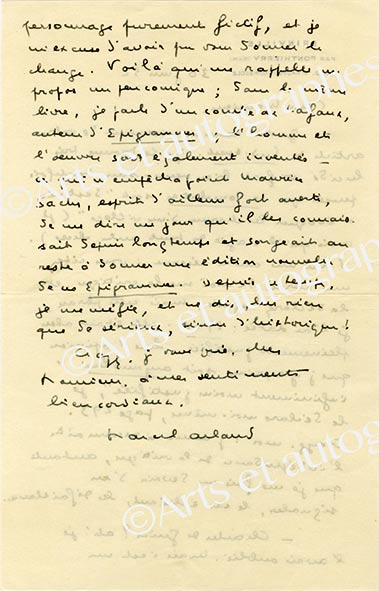 personnage purement fictif, et je
m'excuse d'avoir pu vous donner le
change. Voilà qui me rappelle un
propos un peu comique ; dans le même
livre, je parle d'un comte de
auteur d'Epigrammes ; l'homme et
l'oeuvre sont également inventés –
ce qui n'empêcha point Maurice
Sachs, esprit d'ailleurs fort averti,
de me dire un jour qu'il les connais-
sait depuis longtemps et songeait au
reste à donner une édition nouvelle
de ces Epigrammes. Depuis ce temps,
je me méfie, et ne dis plus rien
que de sérieux, sinon d'historique !
Croyez, je vous prie, cher
Monsieur, à mes sentiments
bien cordiaux.
Marcel Arland
©Arts et autographes
©Arts et autographes
©Arts et autographes